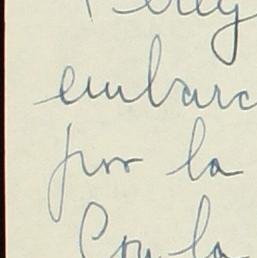 embarc
por la
Con la